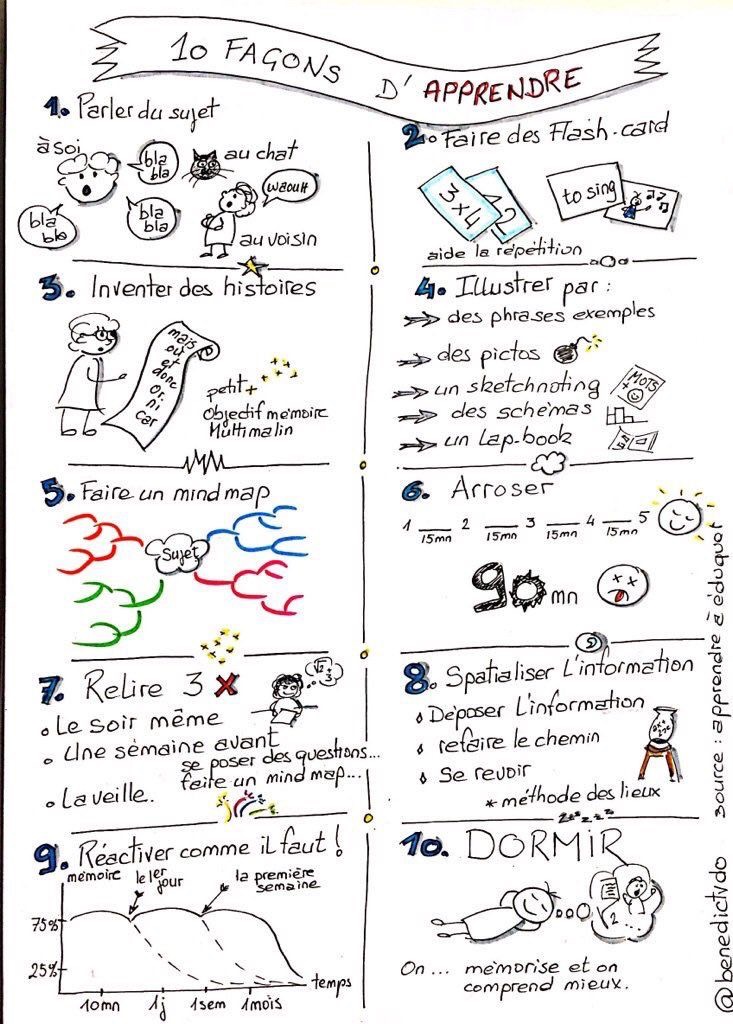 10 FAÇONS D'APPRENDRE
1. Parler du sujet
à soi
bla bla
bla bla
bla bla
au chat
waouh
au voisin
2. Faire des Flash-card
3x4
12
to sing
aide la répétition
3. Inventer des histoires
mais
où
et
donc
or.
ni
car
petit +
Objectif mémoire
Multimalin
4. Illustrer par :
des phrases exemples
des pictos
un sketchnoting
MOTS
+
des schémas
un Lap-book
5. Faire un mind map
Sujet
6. Arroser
1 __ 2 __ 3 __ 4 __ 5
15mn 15mn 15mn 15mn
90 mn
7. Relire 3 x
Le soir même
Une semaine avant
se poser des questions...
faire un mind map...
La veille.
8. Spatialiser L'information
Déposer L'information
refaire le chemin
Se revoir
* méthode des lieux
9. Réactiver comme il faut !
mémoire
le 1er jour
la première semaine
75%
25%
temps
10mn 1j 1sem 1mois
zzzzzz
10. DORMIR
2
On ... mémorise et on
comprend mieux.
source : apprendre à éduquer
@benedictvdo